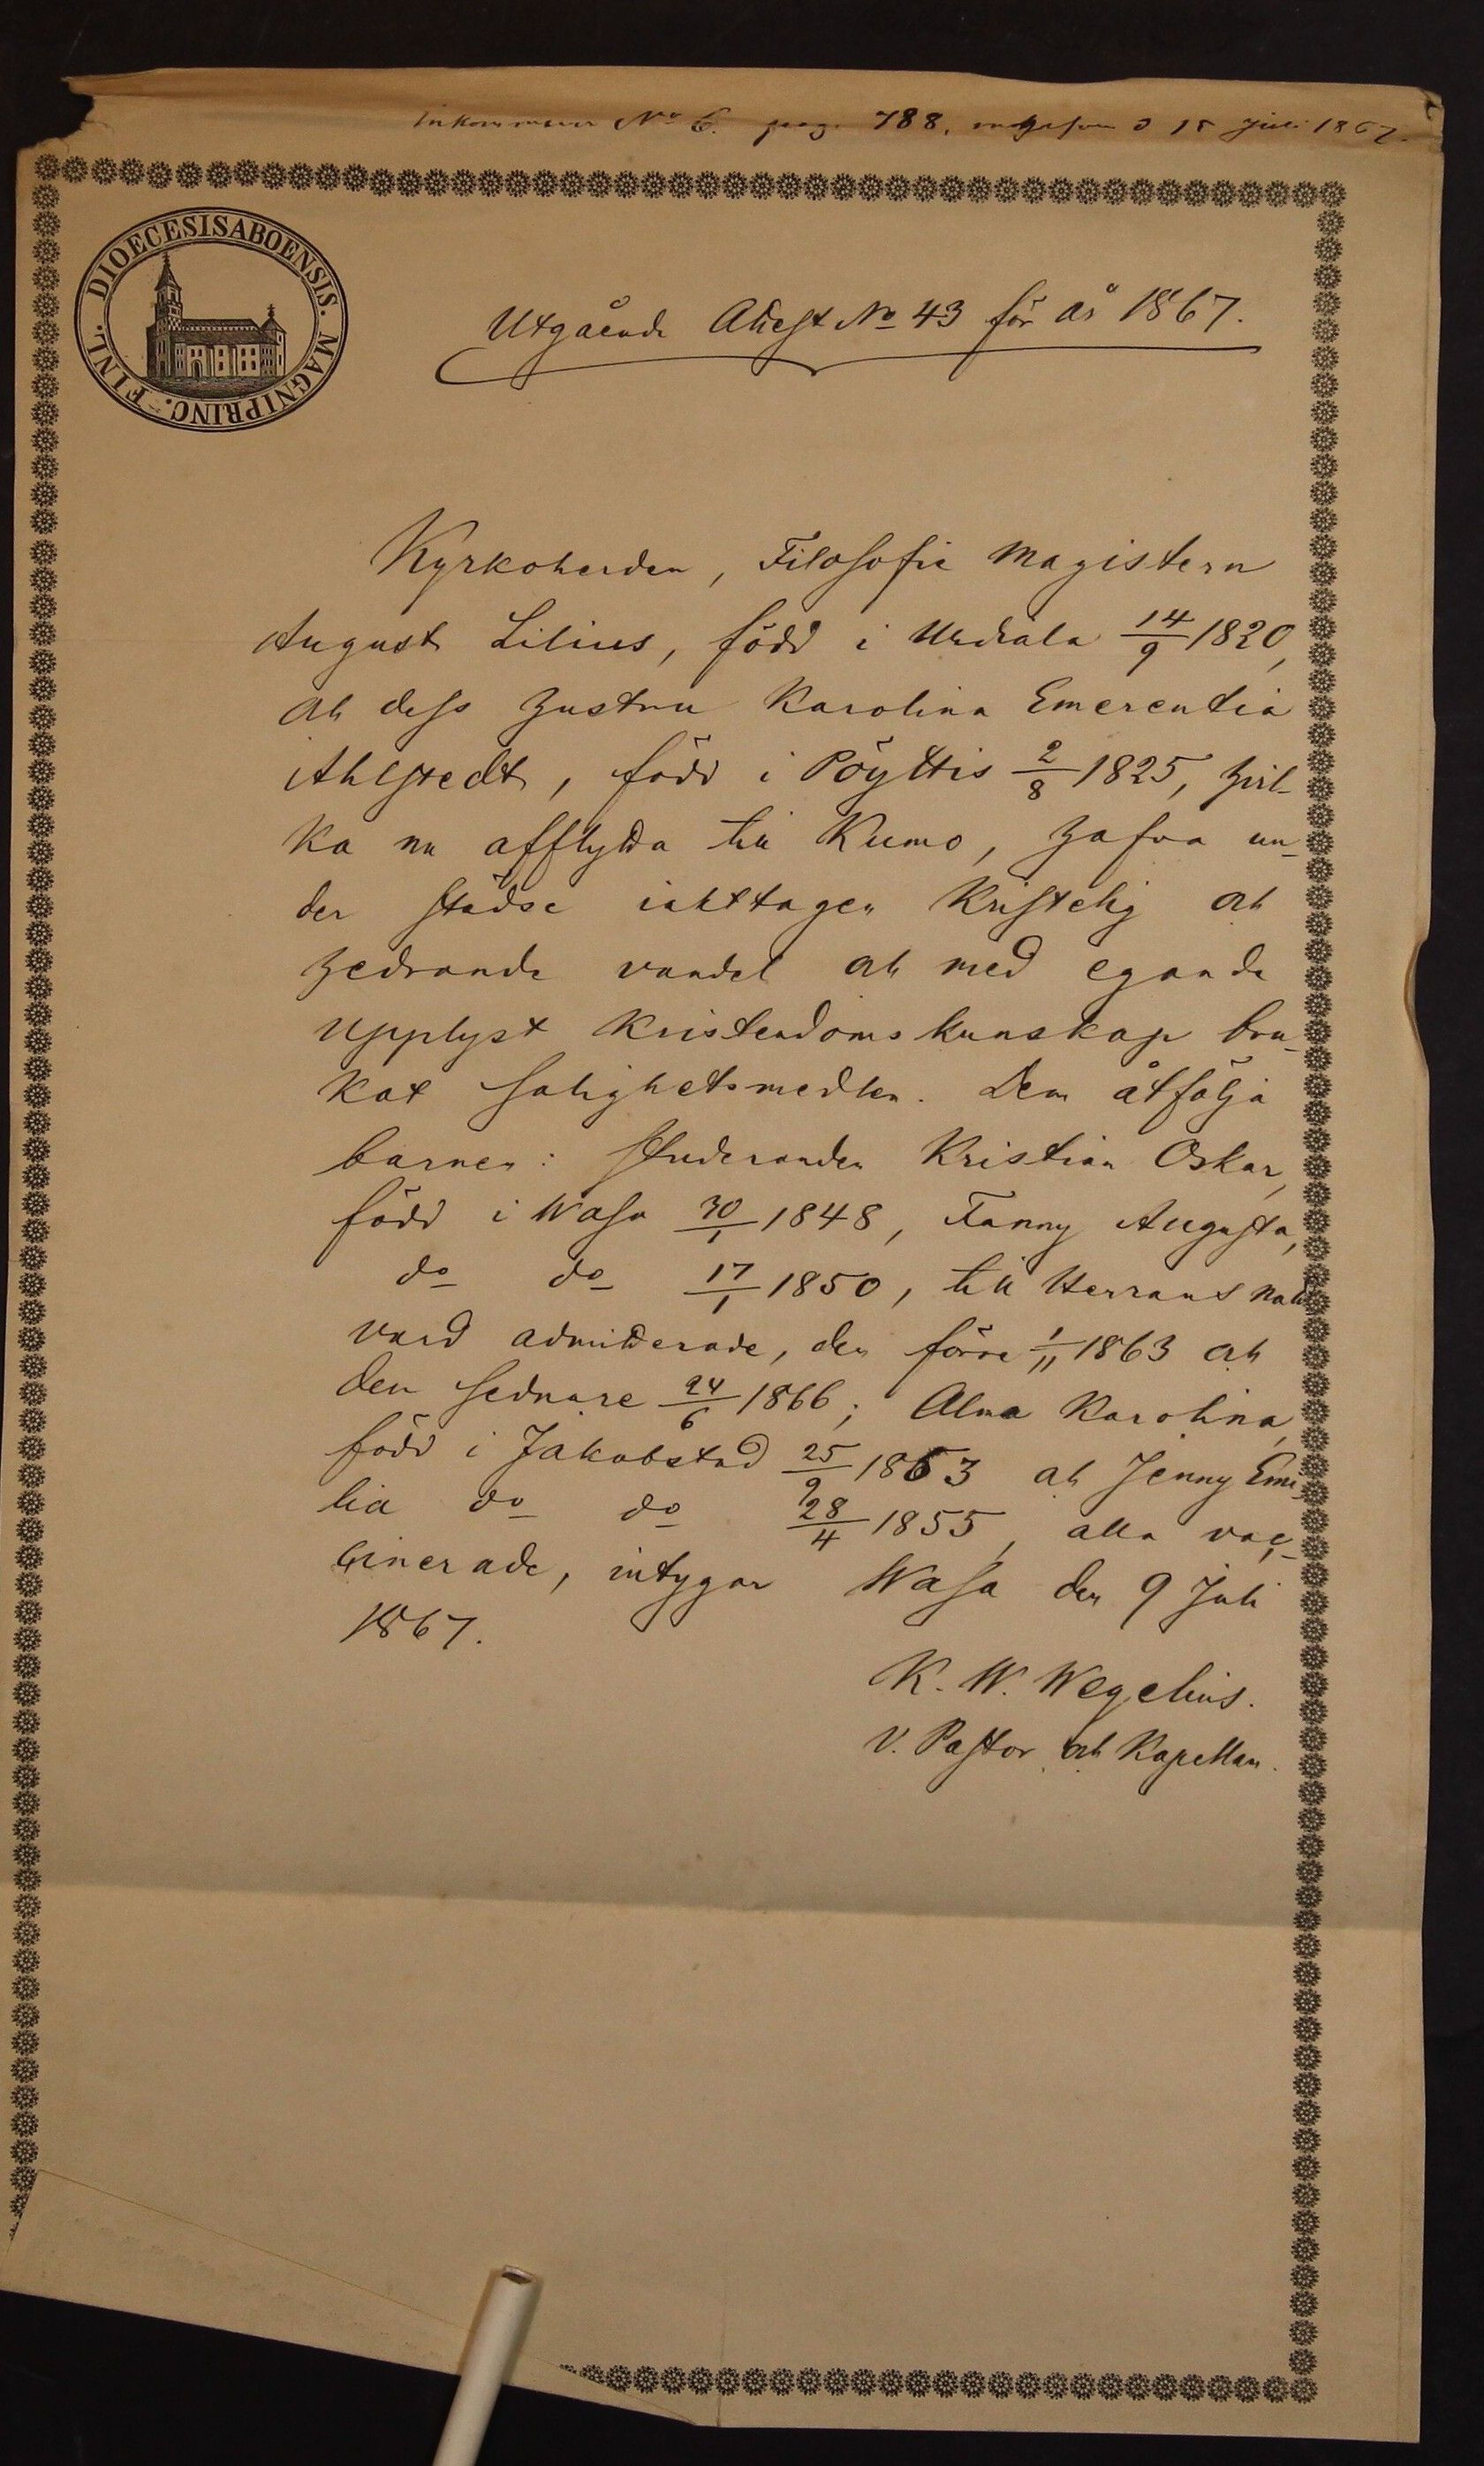 Inkommen No 6. pag. 788. d 15 Juli 1867.
DIOECESISABOENSIS. MAGNIPRINC. FINL.
Utgående Attest No 43 för år 1867.
Kyrkoherden, Filosofie Magistern
August Lilius, född i Urdiala 14/9 1820,
och dess hustru Karolina Emerentia
Ahlstedt, född i Pöyttis 2/8 1825, hvil-
ka nu afflytta till Kumo, hafva un-
der städse iakttagen Kristelig och
hedrande vandel och med egande
upplyst Kristendomskunskap bru-
kat salighetsmedlen. Dem åtfölja
barnen: Studeranden Kristian Oskar,
född i Wasa 30/1 1848, Fanny Augusta,
do do 17/1 1850, till Herrans natt
vard admitterade, den förre 1/11 1863 och
den sednare 24/6 1866; Alma Karolina,
född i Jakobstad 25/9 1853 och Jenny Emi-
lia do do 28/4 1855, alla vac-
cinerade, intygar Wasa den 9 Juli
1867.
K. W. Wegelius.
V. Pastor och Kapellan.